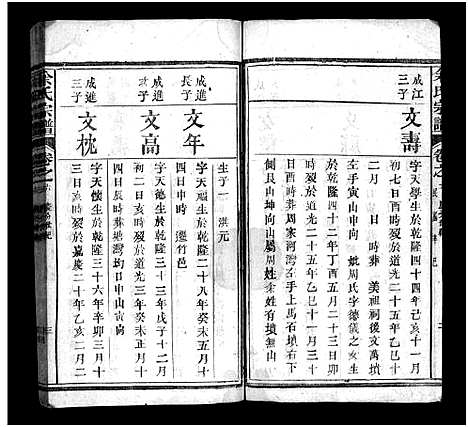 余氏宗譜
卷之
成江
三子
文壽
字天學生於乾隆四十四年己亥十一月
初七日酉時歿於道光二十五年乙巳十二
月 日 時葬 美祖祠後文萬墳
左手寅山申向 妣周氏字德儀之女生
於乾隆四十二年丁酉五月二十三日
時歿於道光二十五年乙巳十一月三十
日 時葬周家河灣左手上馬石墳右下
艮山坤向山屬周姓余姓有墳山無地
生子一 洪元
成進
長子
文年
字天 生於乾隆二十八年癸未五月十
四日申時 遷竹邑
成進
次子
文高
字天德生於乾隆三十三年戊子十二月
初二日亥時歿於道光三年癸未正月十
四日辰時葬塘灣均日中山寅向
成進
三子
文枕
字天懷生於乾隆三十六年辛卯三月十
三日亥時歿於嘉慶二十年乙亥二月二
余氏宗譜
卷之